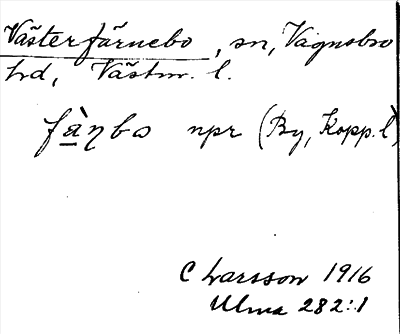 Västerfärnebo, sn, Vagnsbro
hd, Västm. l.
fà̱ŋbo npr (By, Kopp. l)
C Larsson 1916
Ulma 282:1